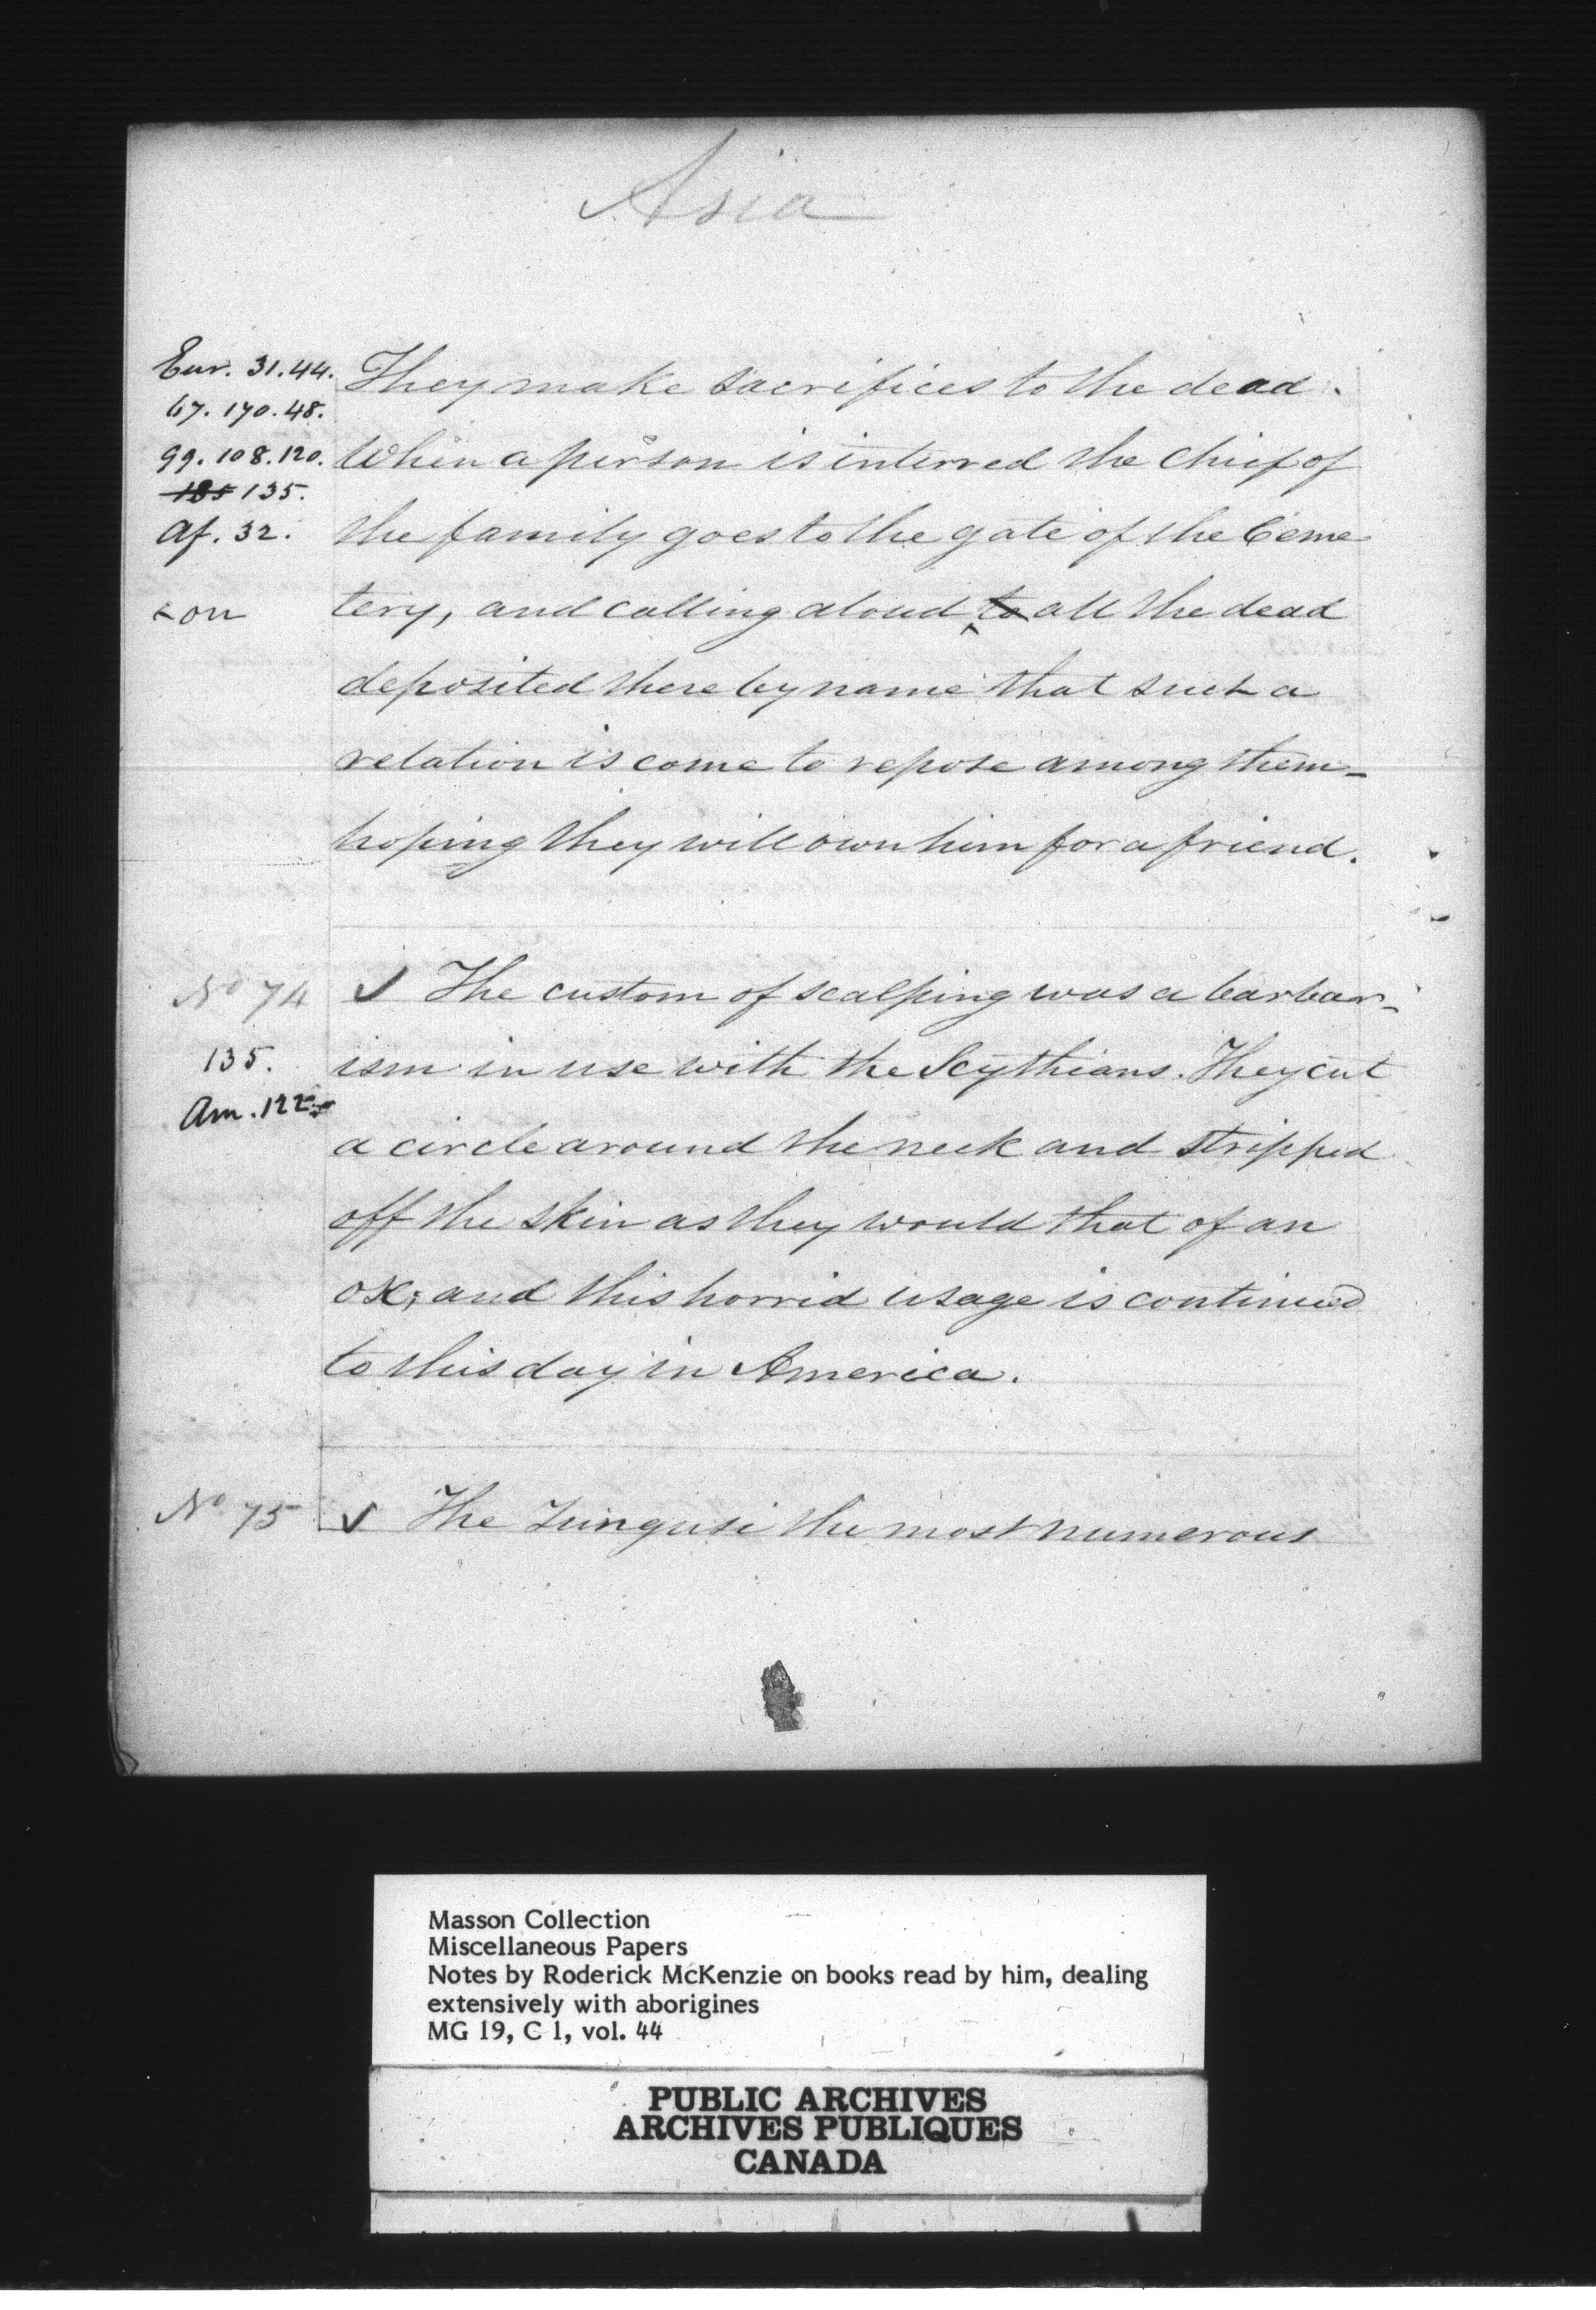 Asia
Eur. 31.44.
67. 170. 48.
99. 108. 120.
185 135.
Af. 32.
They make sacrifices to the dead.
When a person is interred the chief of
the family goes to the gate of the Ceme
on
tery, and calling aloud to all the dead
deposited there by name that such a
relation is come to repose among them_
hoping they will own him for a friend.
No 74
✓ The custom of scalping was a barbar-
135.
ism in use with the Scythians. They cut
Am. 122
a circle around the neck and stripped
off the skin as they would that of an
ox; and this horrid usage is continued
to this day in America.
No 75
✓ The Tungusi the most numerous
Masson Collection
Miscellaneous Papers
Notes by Roderick McKenzie on books read by him, dealing
extensively with aborigines
MG 19, C 1, vol. 44
PUBLIC ARCHIVES
ARCHIVES PUBLIQUES
CANADA